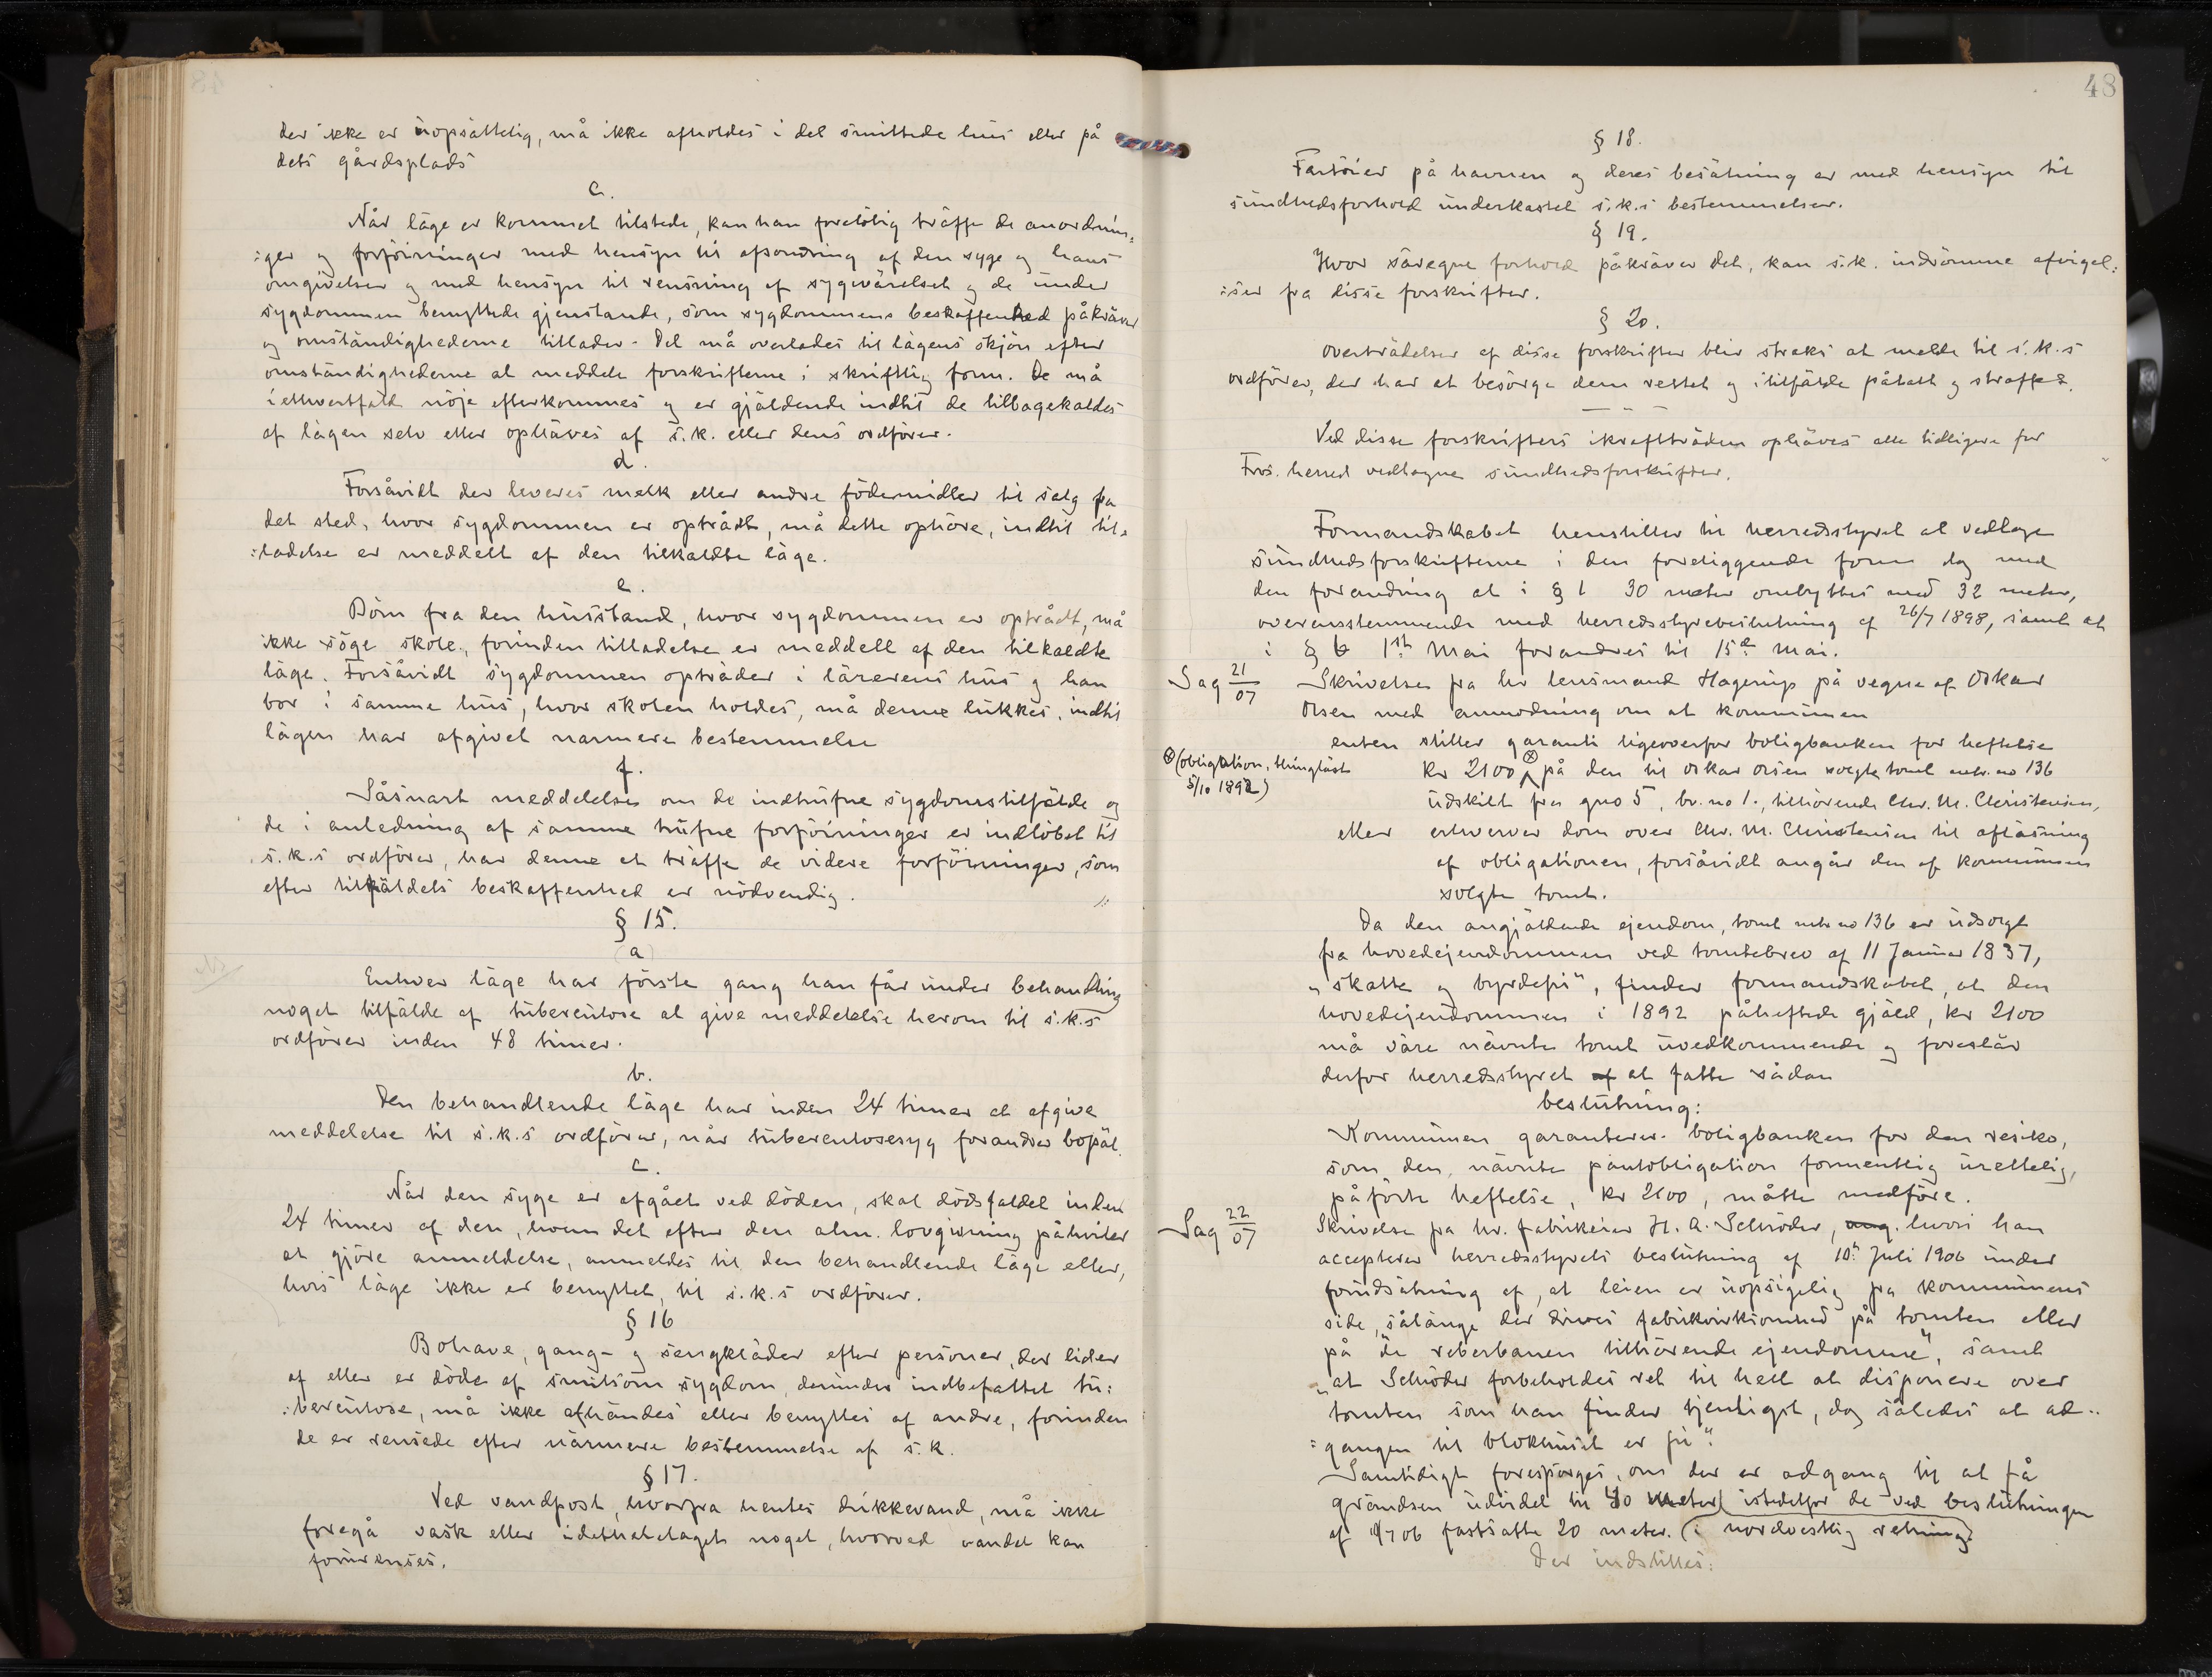 der ikke er uopsättelig, må ikke afholdes i det smittede hus eller på
dets gårdsplads
c.
Når läge er kommet tilstede, kan han foreløbig träffe de anordnin-
:ger og forføininger med hensyn til afsondring af den syge og hans
omgivelser og med hensyn til rensning af sygeværelset og de under
sygdommen benyttede gjenstande, som sygdommens beskaffenhed påkräver
og omständighederne tillader. Det må overlades til lägens skjön efter
omständighederne at meddele forskrifterne i skriftlig form. De må
i ethvertfald nöje efterkommes og er gjäldende indtil de tilbagekaldes
af lägen selv eller ophäves af s.k. eller dens ordförer.
d.
Forsåvidt der leveres melk eller andre födemidler til salg fra
det sted, hvor sygdommen er optrådt, må dette ophöre, indtil til-
:ladelse er meddelt af den tilkaldte läge.
e.
Börn fra den husstand, hvor sygdommen er optrådt, må
ikke söge skole, forinden tilladelse er meddelt af den tilkaldte
läge. Forsåvidt sygdommen opträder i lärerens hus og han
bor i samme hus, hvor skolen holdes, må denne lukkes, indtil
lägen har afgivet närmere bestemmelse
f.
Såsnart meddelelse om de indtrufne sygdomstilfälde og
de i anledning af samme trufne forföininger er indlöbet til
s.k.s ordförer, har denne at träffe de videre forföininger, som
efter tilfäldets beskaffenhed er nödvendig.
§ 15.
(a)
Enhver läge har förste gang han får under behandling
noget tilfälde af tuberculose at give meddelelse herom til s.k.s
ordförer inden 48 timer.
b.
Den behandlende läge har inden 24 timer at afgive
meddelelse til s.k.s ordförer, når tuberculosesyg forandrer bopäl.
c.
Når den syge er afgået ved döden, skal dödsfaldet inden
24 timer af den, hvem det efter den alm. lovgivning påhviler
at gjöre anmeldelse, anmeldes til den behandlende läge eller,
hvis läge ikke er benyttet, til s.k.s ordförer.
§ 16
Bohave, gang- og sengkläder efter personer, der lider
af eller er döde af smitsom sygdom, derunder indbefattet tu:
:berculose, må ikke afhändes eller benyttes af andre, forinden
de er rensede efter närmere bestemmelse af s.k.
§ 17.
Ved vandpost, hvorfra hentes drikkevand, må ikke
foregå vask eller idethele taget noget, hvorved vandet kan
forurenses.
48
§ 18.
Fartöier på havnen og deres besätning er med hensyn til
sundhedsforhold underkastet s.k.s bestemmelser.
§ 19.
Hvor säregne forhold påkräver det, kan s.k. indrömme afvigel:
:ser fra disse forskrifter.
§ 20.
Overträdelser af disse forskrifter blir straks at melde til s.k.s
ordförer, der har at besörge dem rettet og i tilfälde påtalt og straffet.
Ved disse forskrifters ikraftträden ophäves alle tidligere for
Fros. herred vedtagne sundhedsforskrifter.
Formandskabet henstiller til herredsstyret at vedtage
sundhedsforskrifterne i den foreliggende form dog med
den forandring at i § 1 30 meter ombyttes med 32 meter,
overensstemmende med herredsstyrebeslutning af 26/7 1898, samt at
i § 6 1ste Mai forandres til 15de Mai.
Sag 21/07 Skrivelse fra hr lensmand Hagerup på vegne af Oskar
Olsen med anmodning om at kommunen
enten stiller garanti ligeoverfor boligbanken for heftelse
⊗ (obligation, thinglæst
5/10 1892)
kr 2100 ⊗ på den til Oskar Olsen solgte tomt mtr. no 136
udskilt fra gno 5, br. no 1., tilhörende Chr. M. Christensen,
eller erhverver dom over Chr. M. Christensen til aflösning
af obligationen, forsåvidt angår den af kommunen
solgte tomt.
Da den angjäldende ejendom, tomt mtr no 136 er udsolgt
fra hovedejendommen ved tomtebrev af 11 Januar 1837,
„skatte og byrdefri“, finder formandskabet, at den
hovedejendommen i 1892 påheftede gjäld, kr 2100
må väre nävnte tomt uvedkommende og foreslår
derfor herredsstyret af at fatte sådan
beslutning:
Kommunen garanterer boligbanken for den resiko,
som den, nävnte pantobligation formentlig urettelig,
påförte heftelse, kr 2100, måtte medföre.
Sag 22/07 Skrivelse fra hr. fabrikeier H. A. Schröder, ang. hvori han
accepterer herredsstyrets beslutning af 10de Juli 1906 under
forudsätning af, at leien er uopsigelig fra kommunens
side, sålänge der drives fabrikvirksomhed på tomten eller
på „de reberbanen tilhörende ejendomme“, samt
„at Schröder forbeholdes ret til helt at disponere over
tomten som han finder tjenligst, dog således at ad-
:gangen til blokhuset er fri“.
Samtidigt forespörges, om der er adgang til at få
grändsen udvidet til 40 meter istedetfor de ved beslutningen
af 10/7 06 fastsatte 20 meter. (i nordvestlig retning)
Der indstilles: